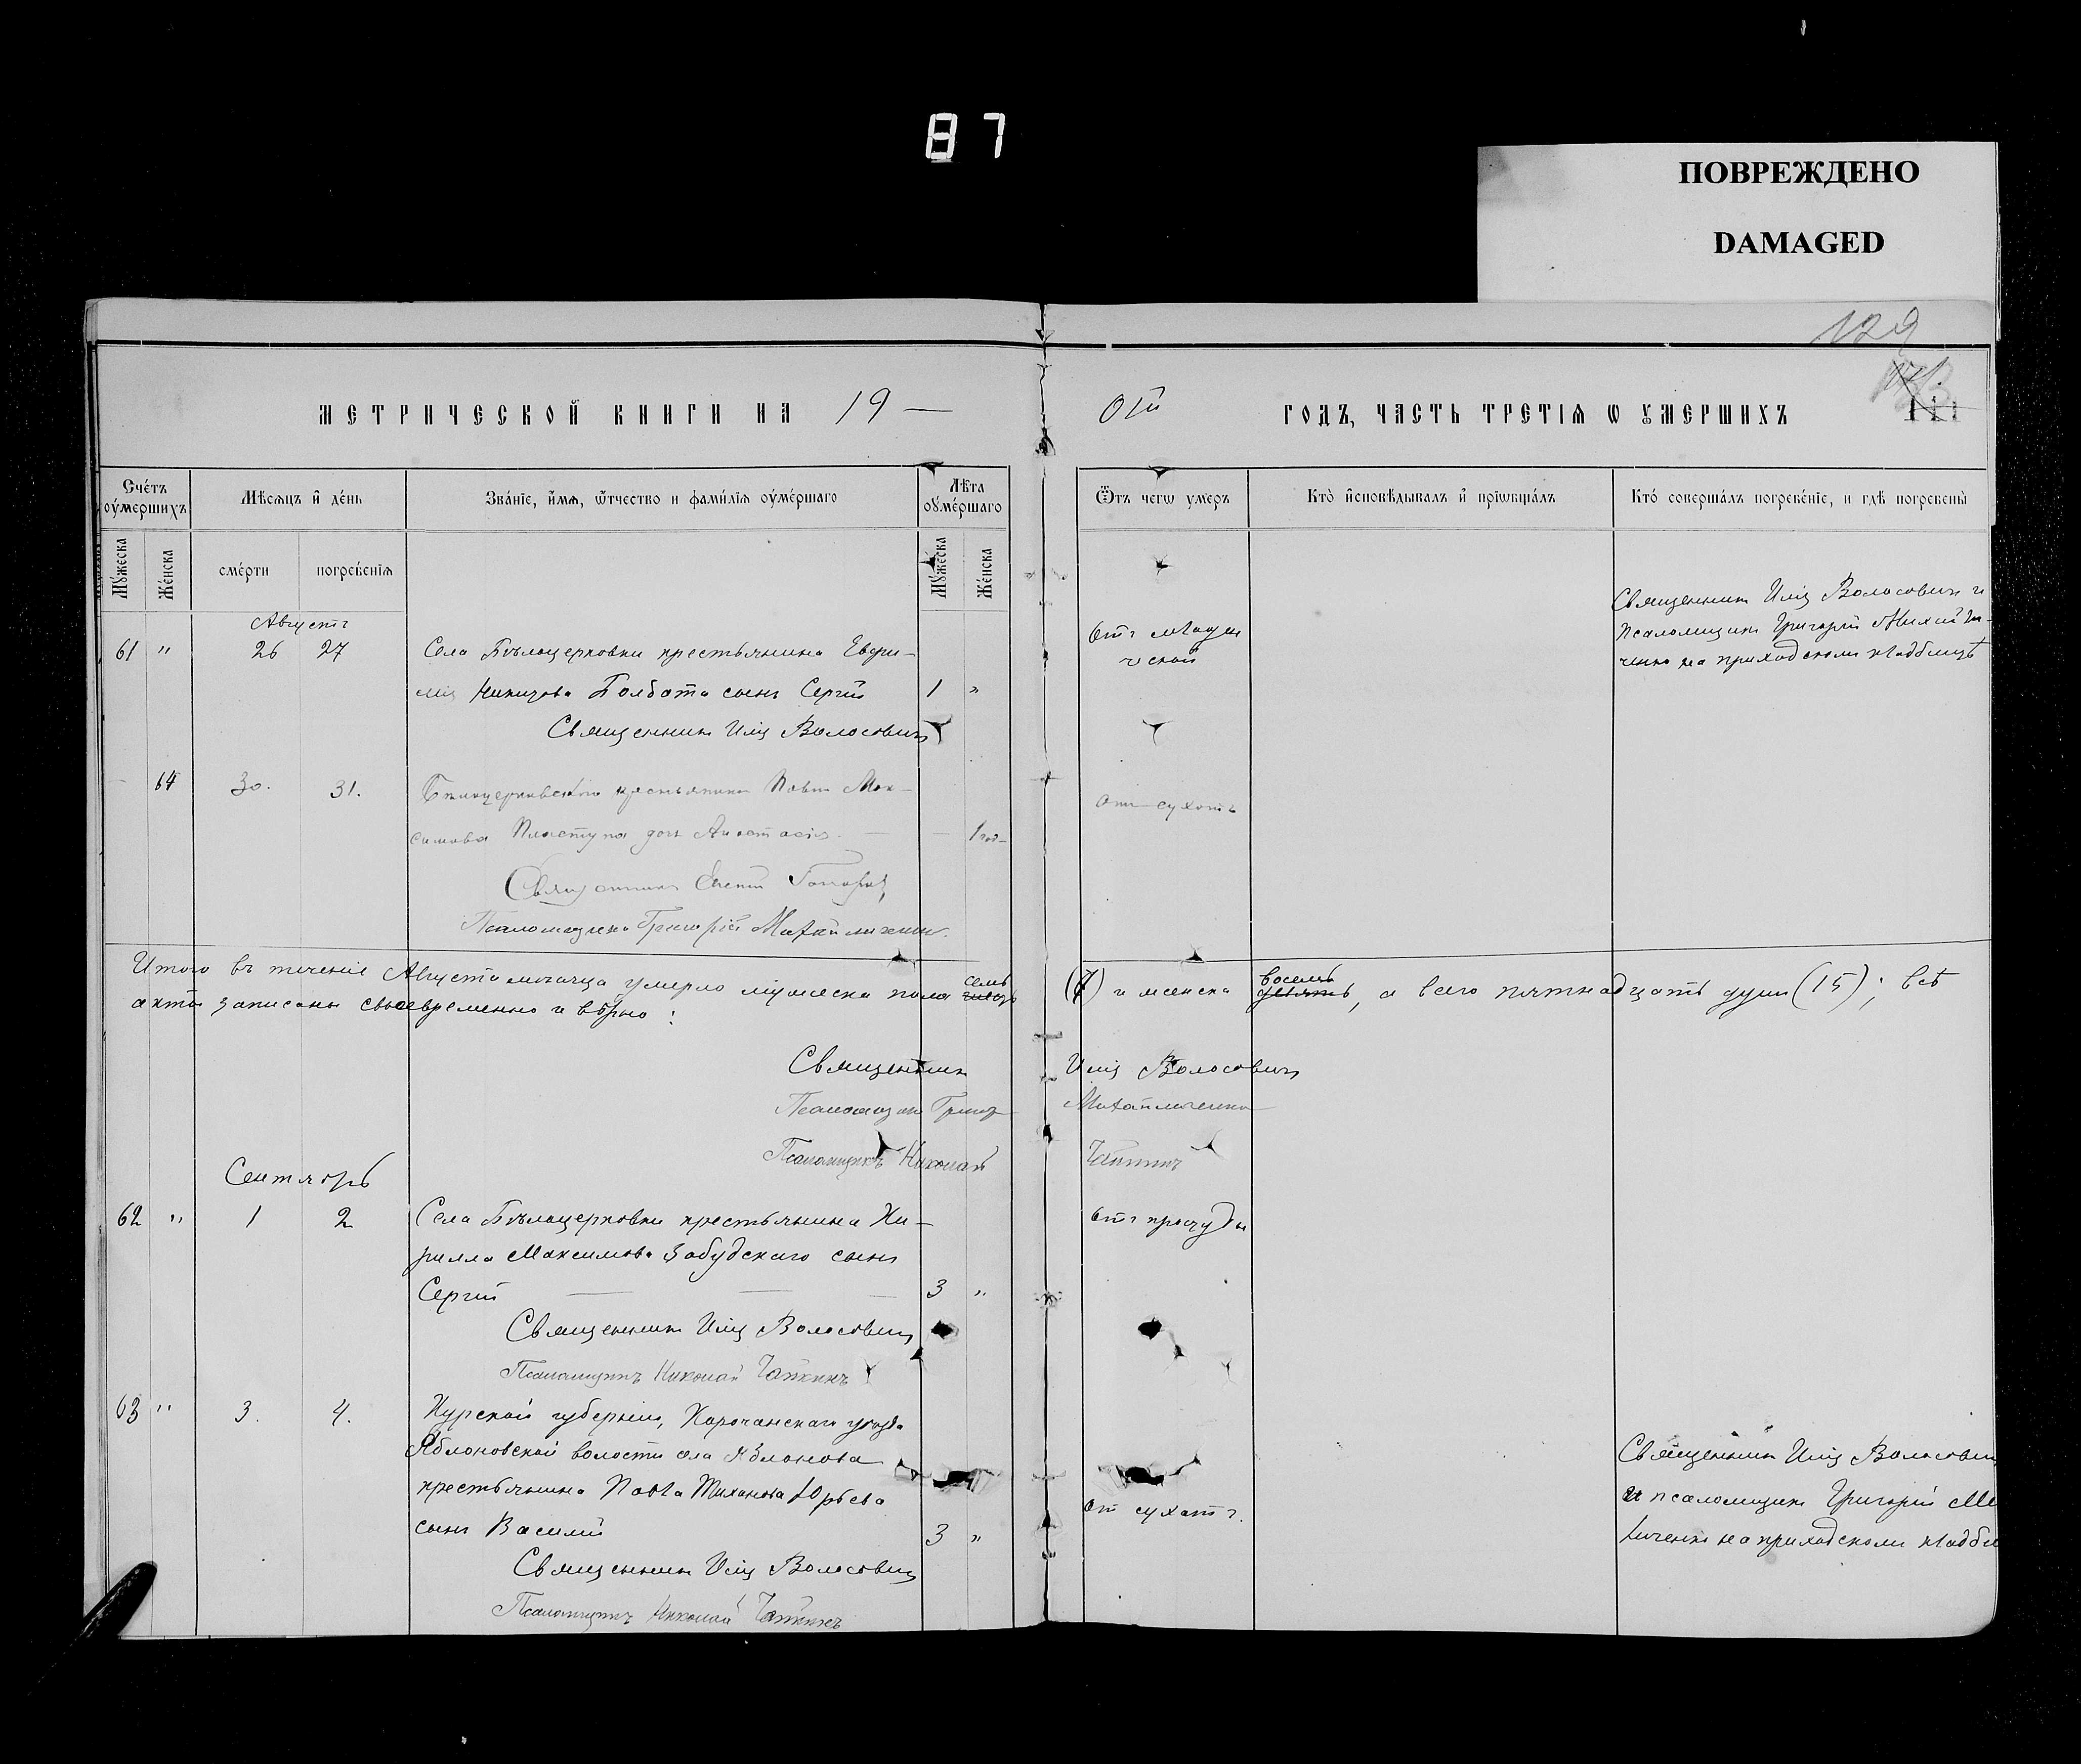 87
ПОВРЕЖДЕНО
DAMAGED
129
МЕТРИЧЕСКОЙ КНИГИ НА 19 — 01й ГОДЪ, ЧАСТЬ ТРЕТІЯ Ѡ УМЕРШИХЪ
Счетъ оумершихъ
Мѣсяцъ и день
Званіе, имя, ѿчество и фамилія оумершаго
Лѣта оумершаго
Ѿтъ чегѡ умеръ
Кто исповѣдывалъ и пріѡбщалъ
Кто совершалъ погребеніе, и гдѣ погребены
Мужеска
Женска
смерти
погребенія
Мужеска
Женска
Августъ
61 " 26 27
Села Бѣлоцерковки крестьянина Евфи-
мія Никитова Болбота сынъ Сергій 1 "
Священникъ Илія Волосовичъ
Отъ младен
ческой
Священникъ Илія Волосовичъ и
псаломщикъ Григорій Михайли-
ченко на приходскомъ кладбищѣ
64 30. 31.
Бѣлоцерковскаго крестьянина Павла Мак-
симова Пластуна дочь Анастасія — — 1 год-
Священникъ
Псаломщикъ Григорій Михайличенко.
отъ сухотъ
Итого въ теченіе Августа мѣсяца умерло мужеска пола семь (7) и женска восемь, а всего пятнадцать душъ (15); всѣ
акты записаны своевременно и вѣрно:
Священникъ Илія Волосовичъ
Псаломщикъ Григор Михайличенко
Псаломщикъ Николай Чапкинъ
Сентябрь
62 " 1 2
Села Бѣлоцерковки крестьянина Ки-
рилла Максимова Забудскаго сынъ
Сергій — — — 3 "
Священникъ Илія Волосовичъ
Псаломщикъ Николай Чапкинъ
Отъ простуды
63 " 3. 4.
Курской губерніи, Корочанскаго уѣзда
Яблоновской волости села Яблонова
крестьянина Павла Тиханова Юрьева
сынъ Василій 3 "
Священникъ Илія Волосовичъ
Псаломщикъ Николай Чапкинъ
От сухотъ.
Священникъ Илія Волосович
и псаломщикъ Григорій Ми
личенко на приходскомъ кладби